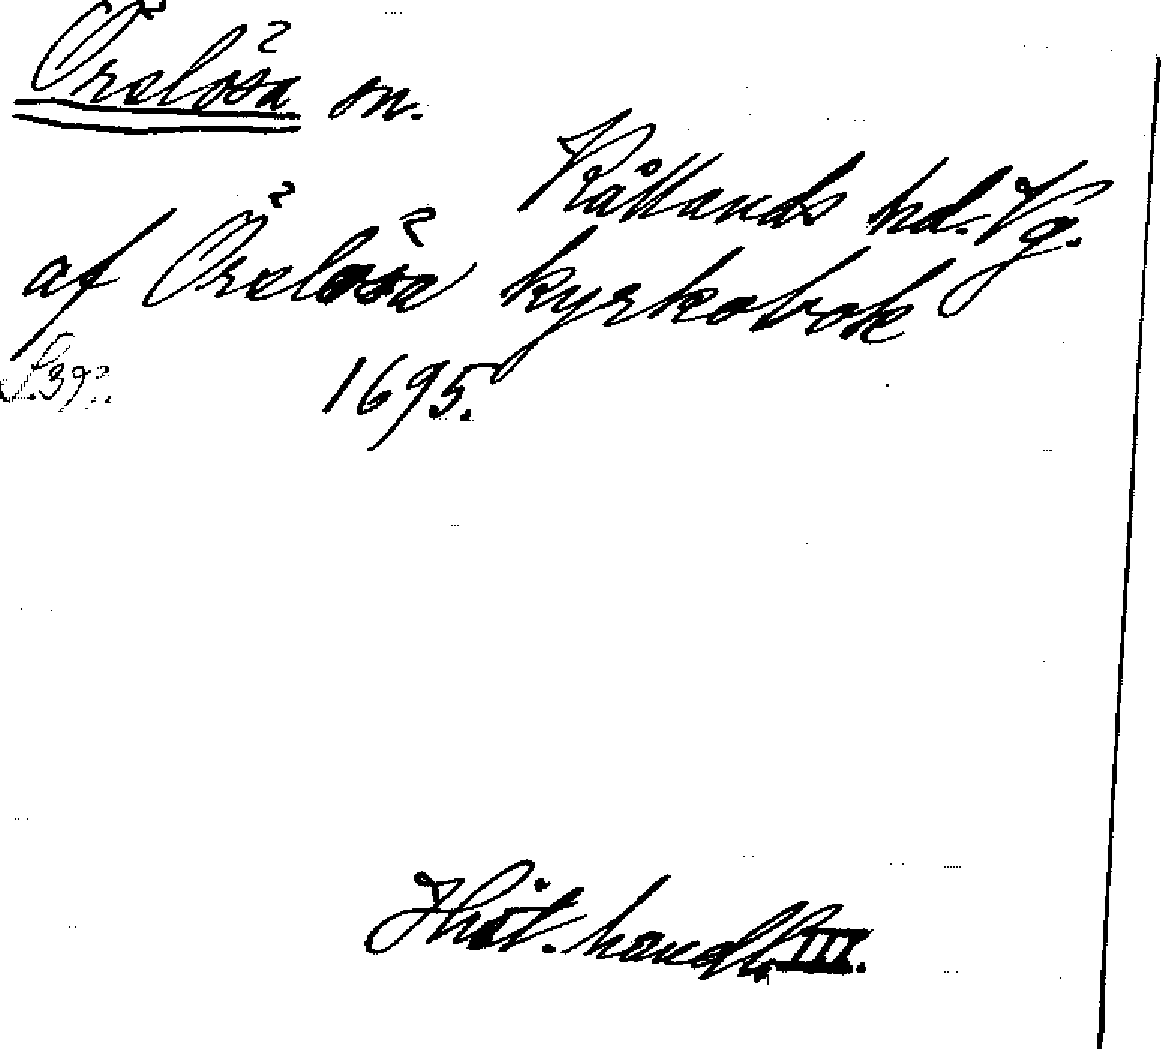 Öreslösa sn.
Kållands hd. Vg.
af Örelösa kyrkobok
S. 39
1695.
Hist. handl. III.